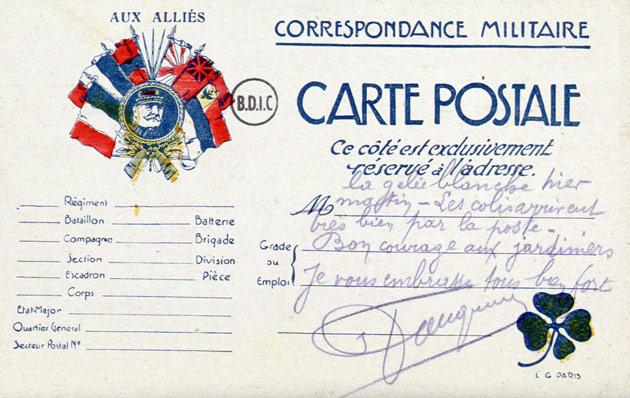 AUX ALLIÉS
CORRESPONDANCE MILITAIRE
B.D.I.C
CARTE POSTALE
Ce côté est exclusivement
réservé à l'adresse.
la gelée blanche hier
M mattin - Les colis arrivent
très bien par la poste -
Bon courage aux jardiniers
Je vous embrasse tous bien fort
Régiment
Bataillon Batterie
Compagnie Brigade
Section Division
Escadron Pièce
Corps
Etat-Major
Quartier Général
Secteur Postal N°
Grade
ou
Emploi
L G PARIS